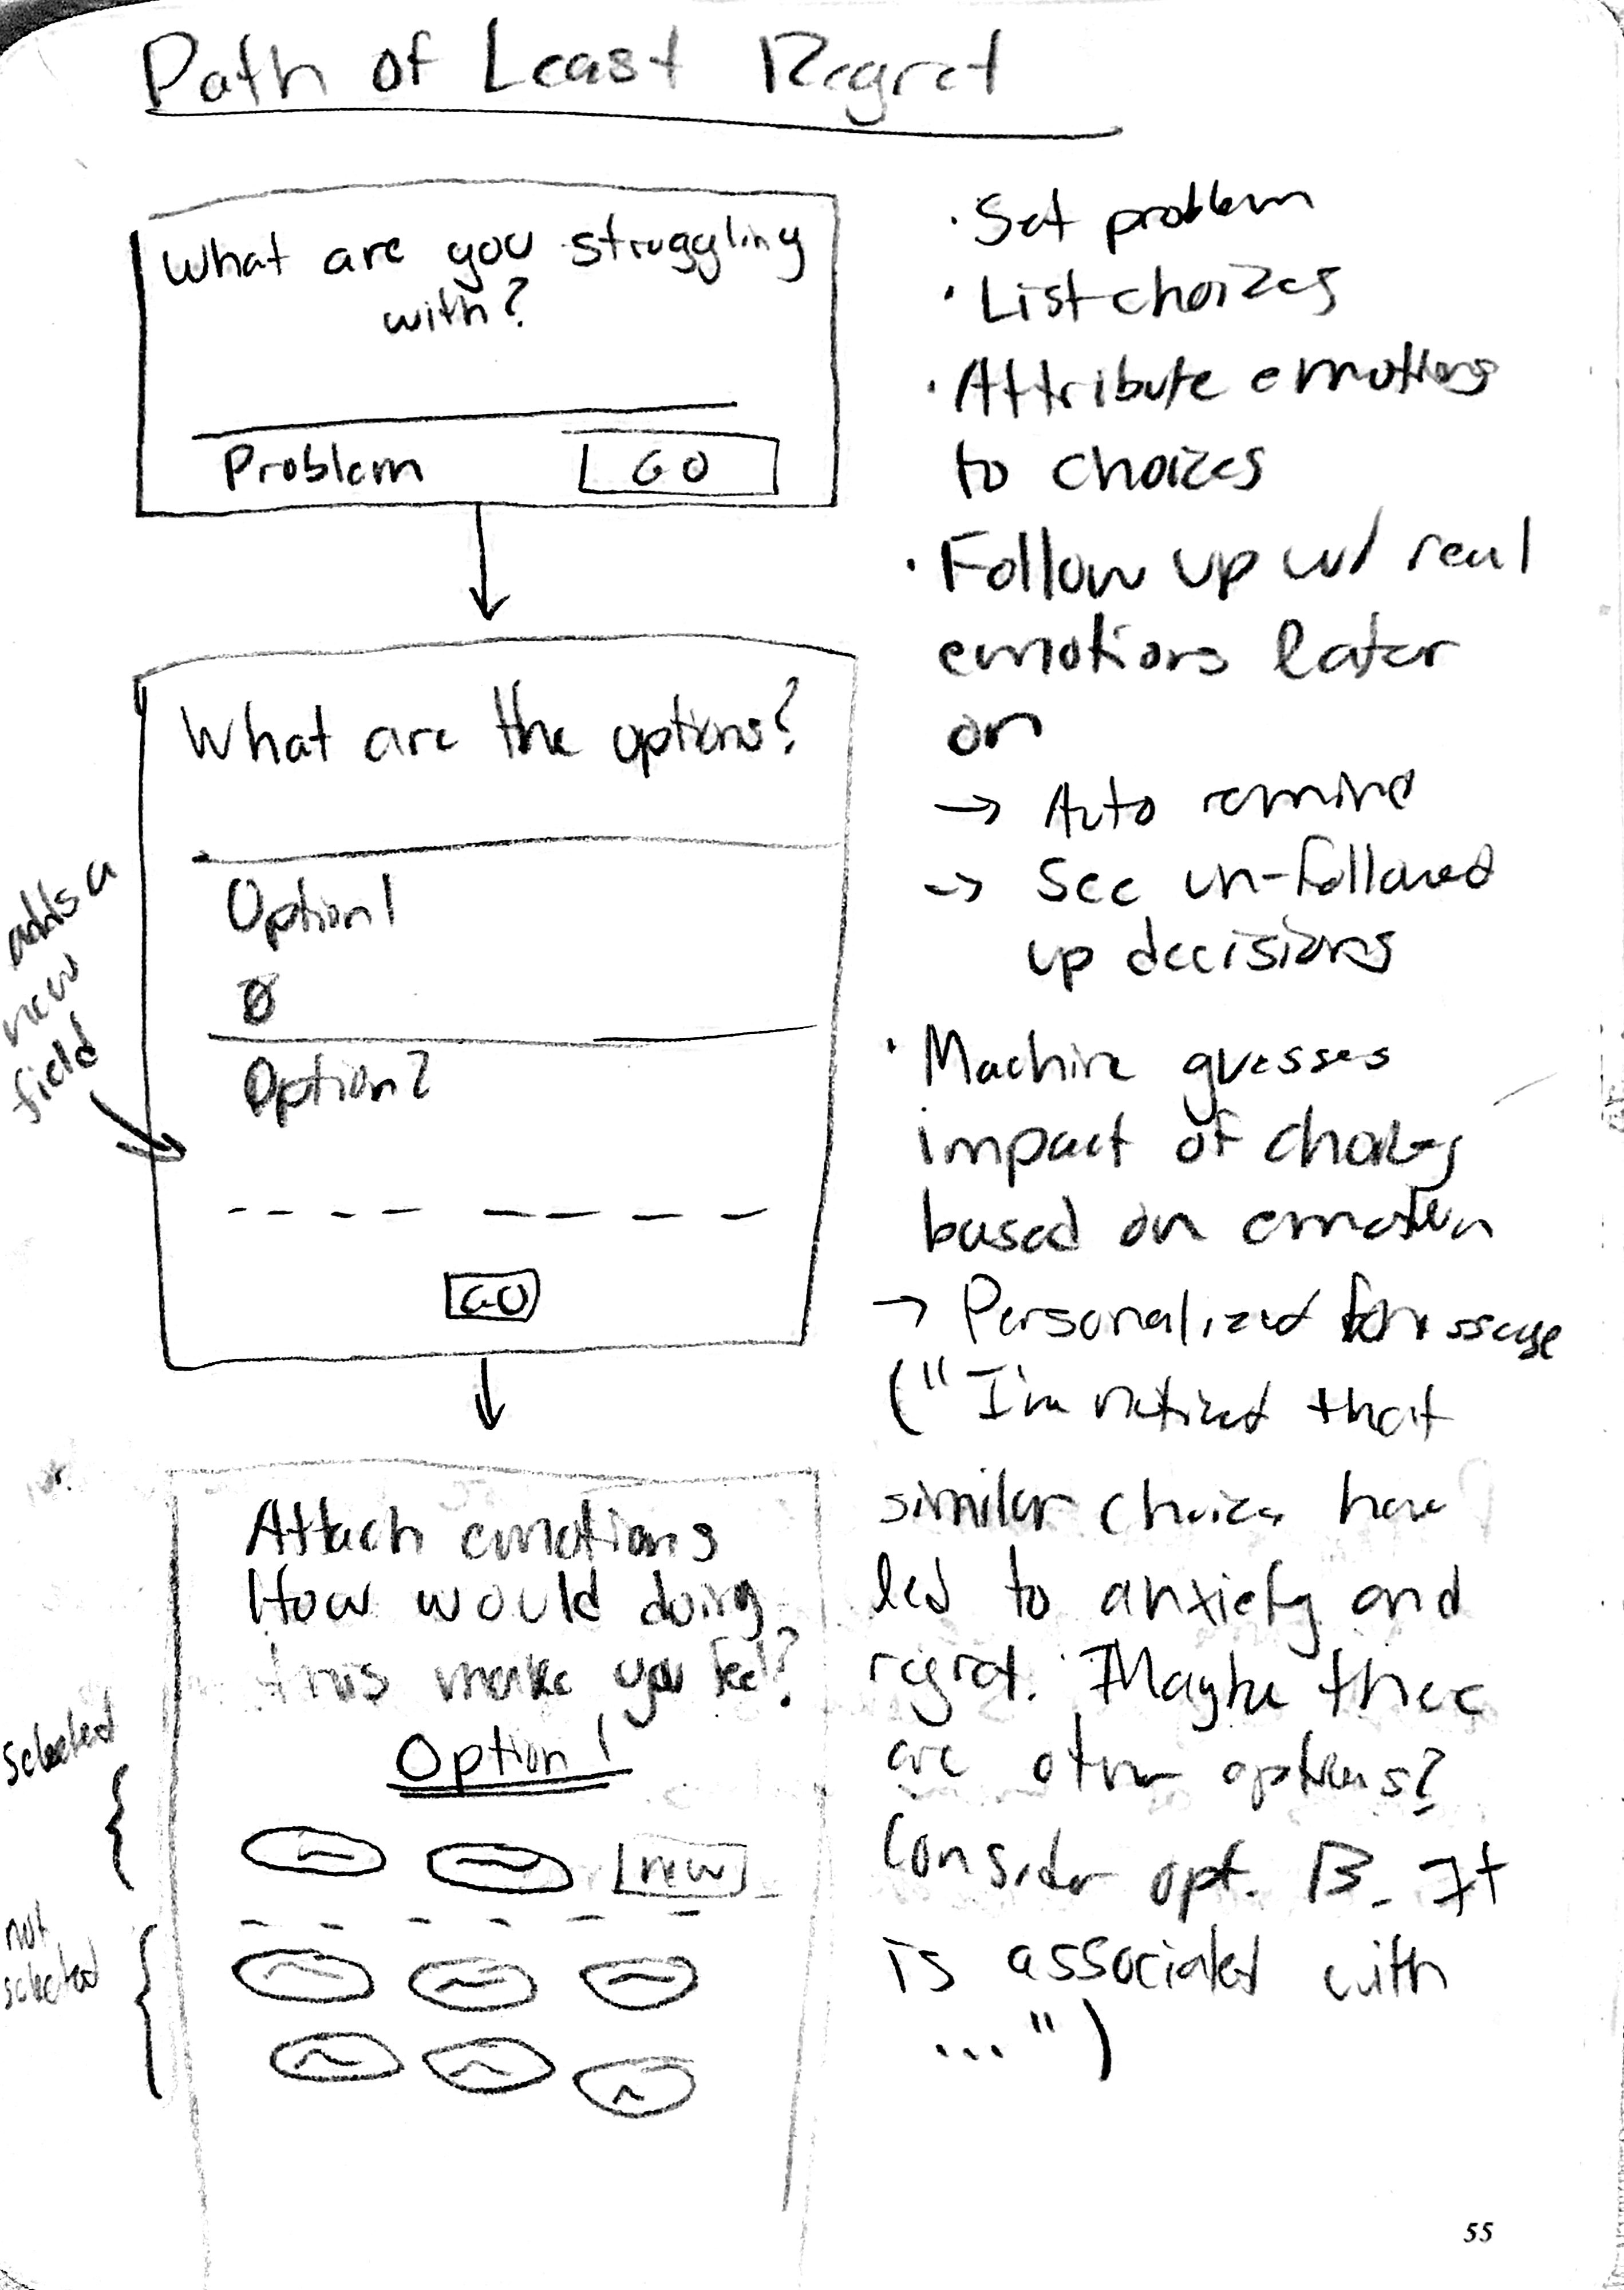 Path of Least Regret
What are you struggling
with?
Problem
GO
What are the options?
Option 1
Option 2
GO
adds a
new
field
Attach emotions
How would doing
this make you feel?
Option 1
new
selected
not
selected
· Set problem
· List choizes
· Attribute emotions
to choizes
· Follow up w/ real
emotions later
on
→ Auto remind
→ See un-followed
up decisions
· Machine guesses
impact of choices
based on emotion
→ Personalized
("I'm noticed that
similar choices have
led to anxiety and
regret. Maybe there
are other options?
Consider opt. B. It
is associated with
...")
55